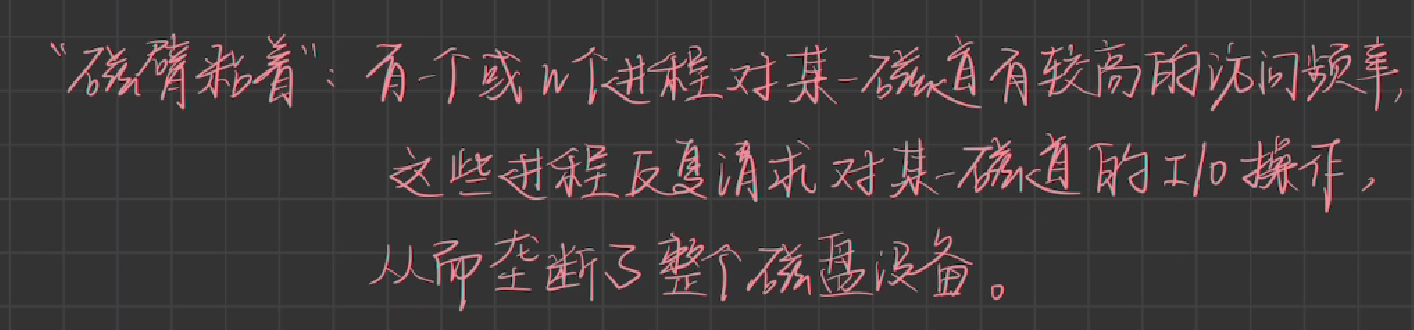 “磁臂粘着”：有一个或n个进程对某一磁道有较高的访问频率，
这些进程反复请求对某一磁道的I/O操作，
从而垄断了整个磁盘设备。